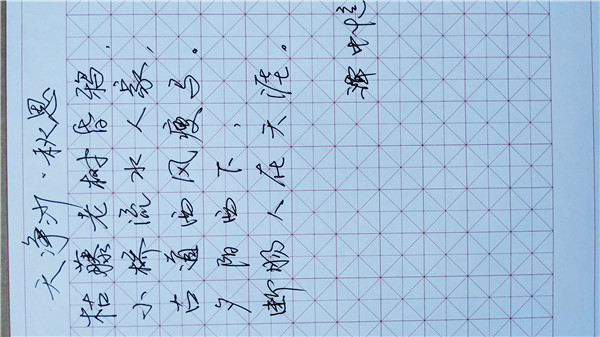 天净沙·秋思
枯藤老树昏鸦，
小桥流水人家，
古道西风瘦马。
夕阳西下，
断肠人在天涯。